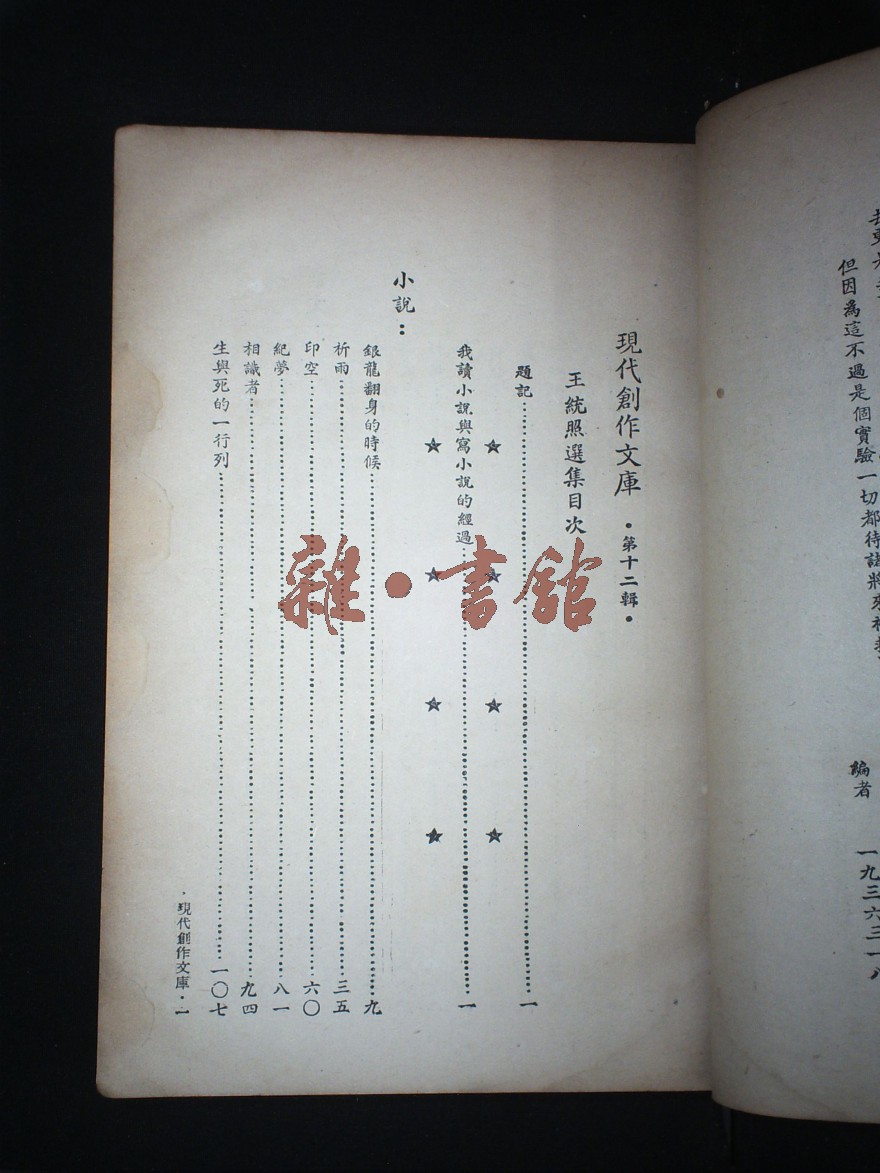 但因為這不過是個實驗一切都待諸將來
編者
一九三六三一八
現代創作文庫 •第十二輯•
王統照選集目次
題記……一
我讀小說與寫小說的經過……一
小說：
銀龍翻身的時候……九
祈雨……三五
印空……六〇
紀夢……八一
相識者……九四
生與死的一行列……一〇七
•現代創作文庫•一
雜•書館